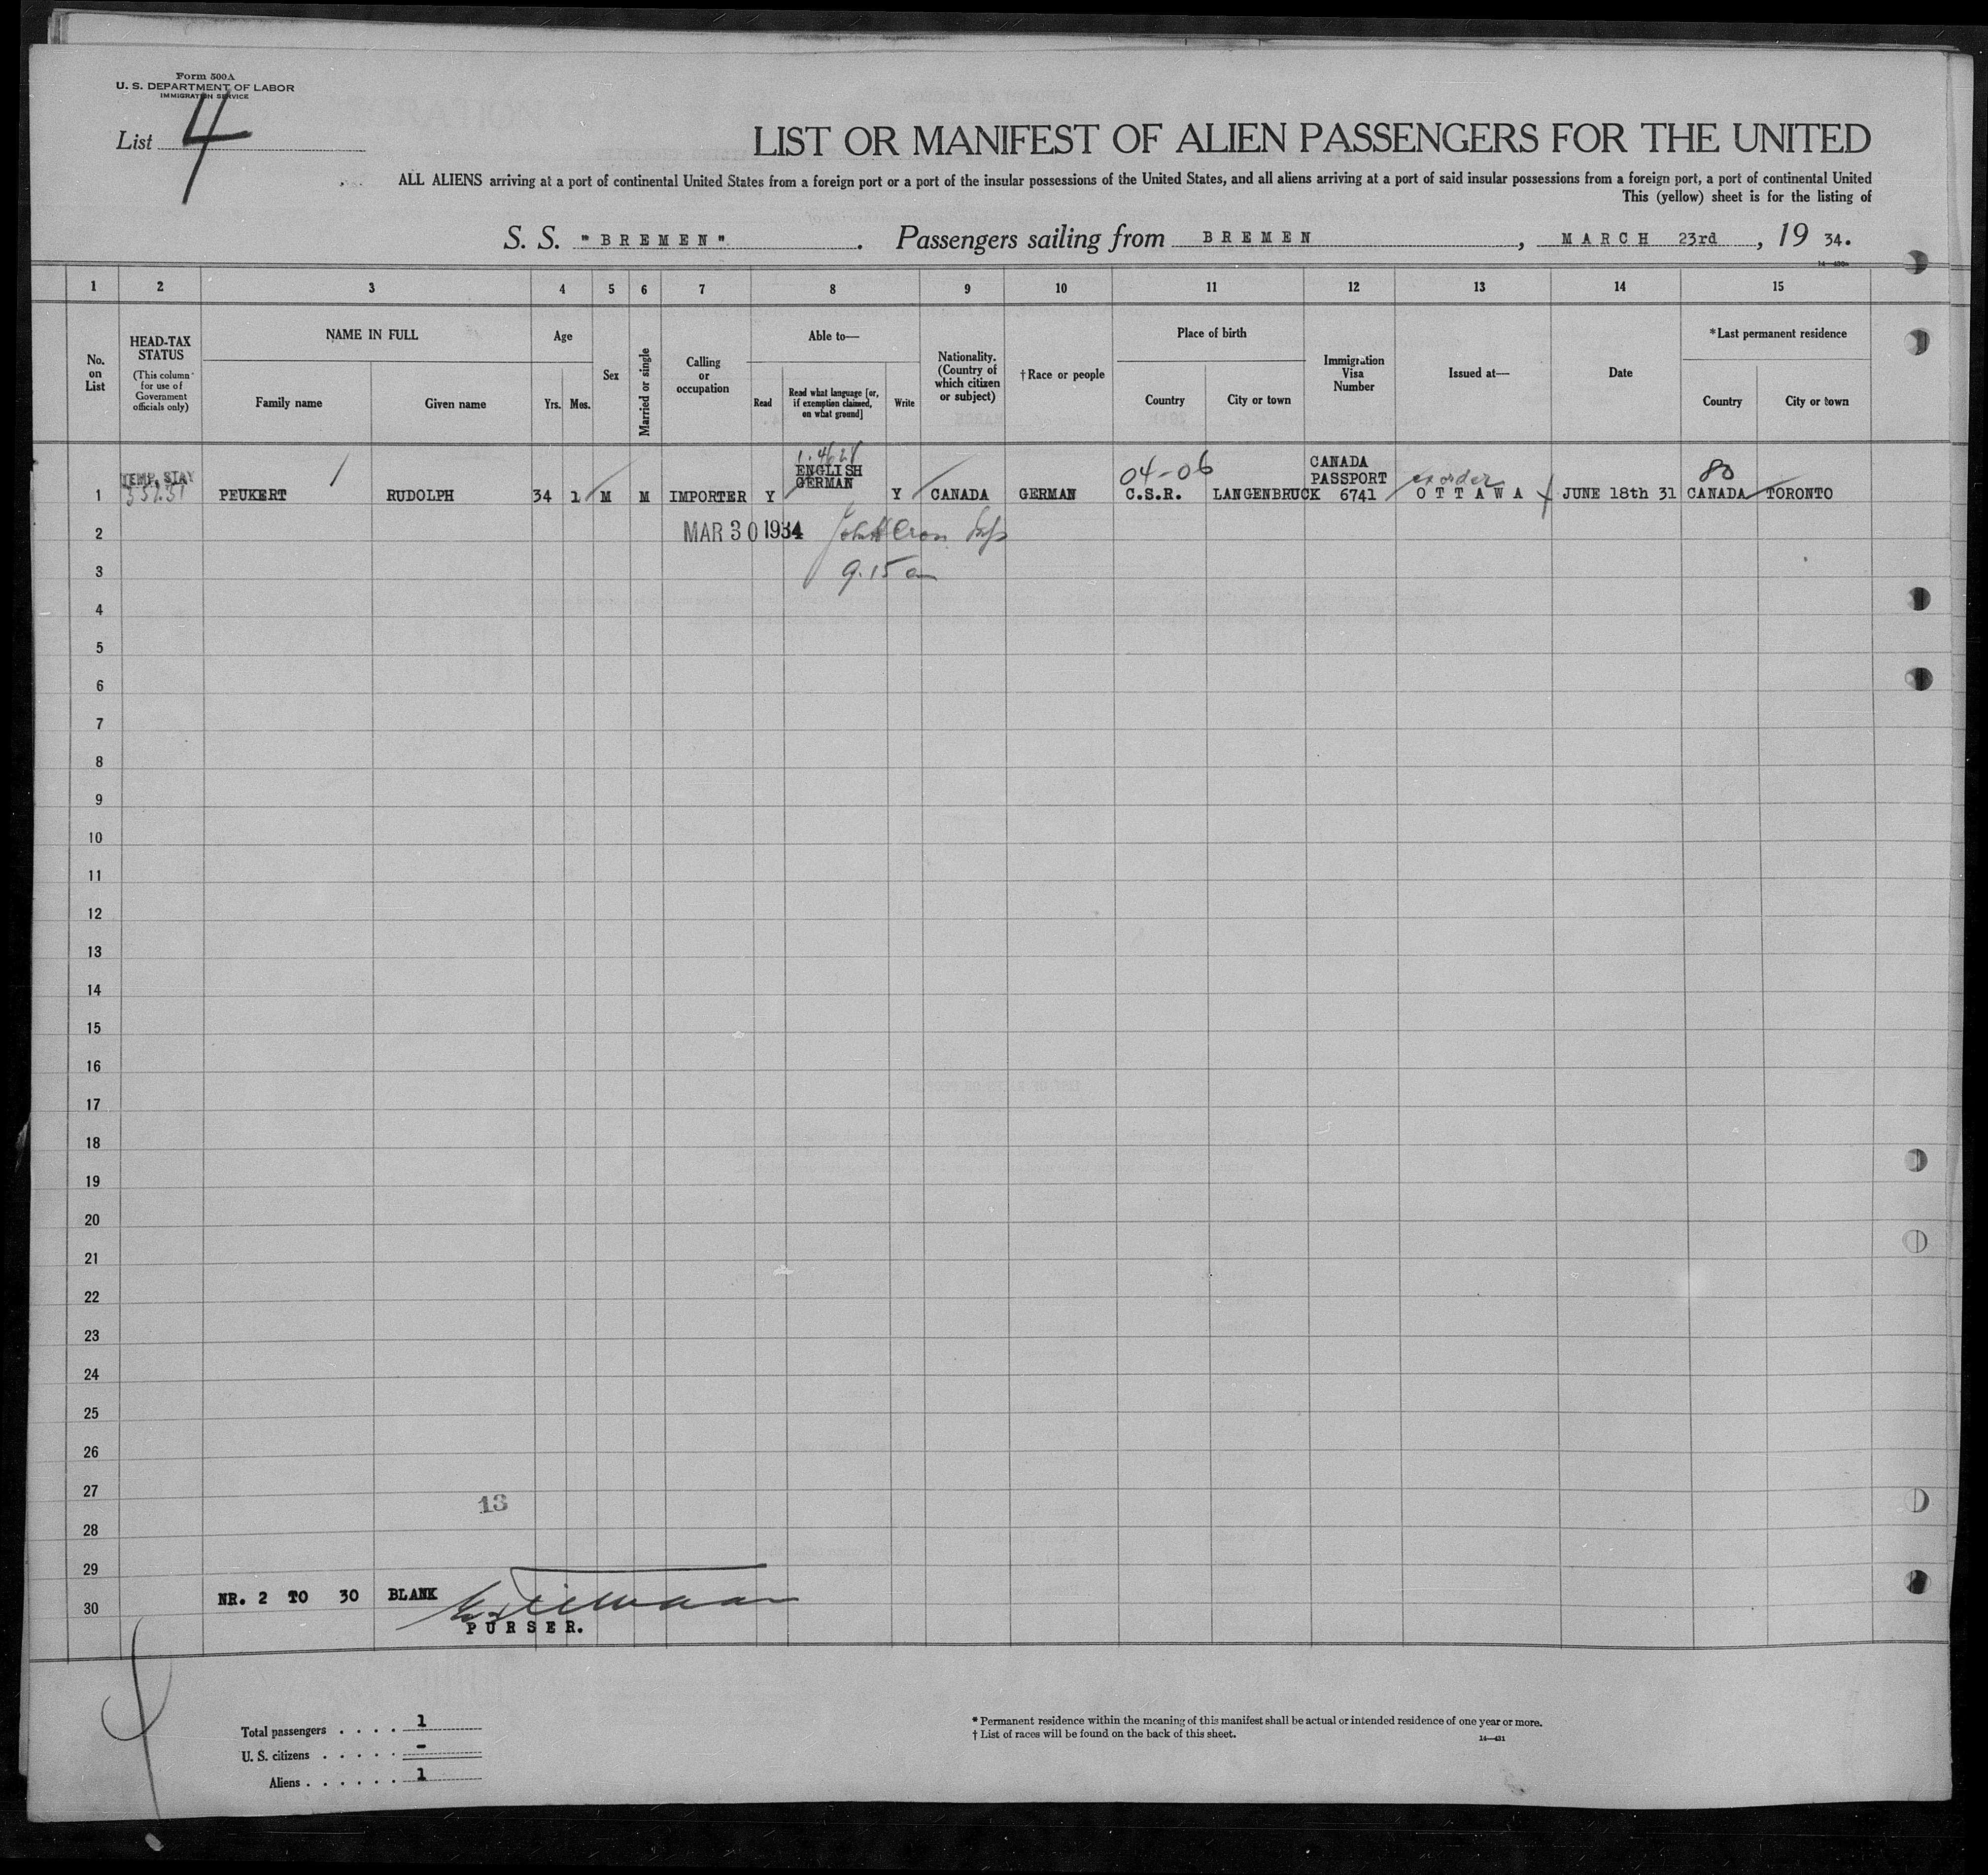 Form 500A
U. S. DEPARTMENT OF LABOR
IMMIGRATION SERVICE
List 4
LIST OR MANIFEST OF ALIEN PASSENGERS FOR THE UNITED
ALL ALIENS arriving at a port of continental United States from a foreign port or a port of the insular possessions of the United States, and all aliens arriving at a port of said insular possessions from a foreign port, a port of continental United
This (yellow) sheet is for the listing of
S. S. "BREMEN". Passengers sailing from BREMEN, MARCH 23rd, 19 34.
1 2 3 4 5 6 7 8 9 10 11 12 13 14 15
No. on List
HEAD-TAX STATUS
(This column for use of Government officials only)
NAME IN FULL
Family name Given name
Age
Yrs. Mos.
Sex
Married or single
Calling or occupation
Able to—
Read
Read what language [or, if exemption claimed, on what ground]
Write
Nationality. (Country of which citizen or subject)
†Race or people
Place of birth
Country City or town
Immigration Visa Number
Issued at—
Date
*Last permanent residence
Country City or town
TEMP. STAY
1 PEUKERT RUDOLPH 34 1 M M IMPORTER Y ENGLISH GERMAN Y CANADA GERMAN 04-06 C.S.R. LANGENBRUCK CANADA PASSPORT 6741 OTTAWA JUNE 18th 31 80 CANADA TORONTO
2 MAR 30 1934
3 9.15 am
4
5
6
7
8
9
10
11
12
13
14
15
16
17
18
19
20
21
22
23
24
25
26
27
13
28
29
NR. 2 TO 30 BLANK
30
PURSER.
Total passengers . . . . 1
U. S. citizens . . . . . -
Aliens . . . . . . 1
* Permanent residence within the meaning of this manifest shall be actual or intended residence of one year or more.
† List of races will be found on the back of this sheet.
14—431